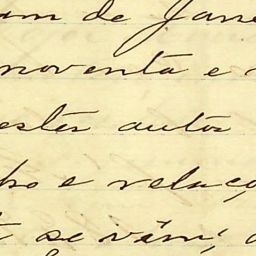 um de Jane
noventa e
estes autos
po e relaç
se vêm, a